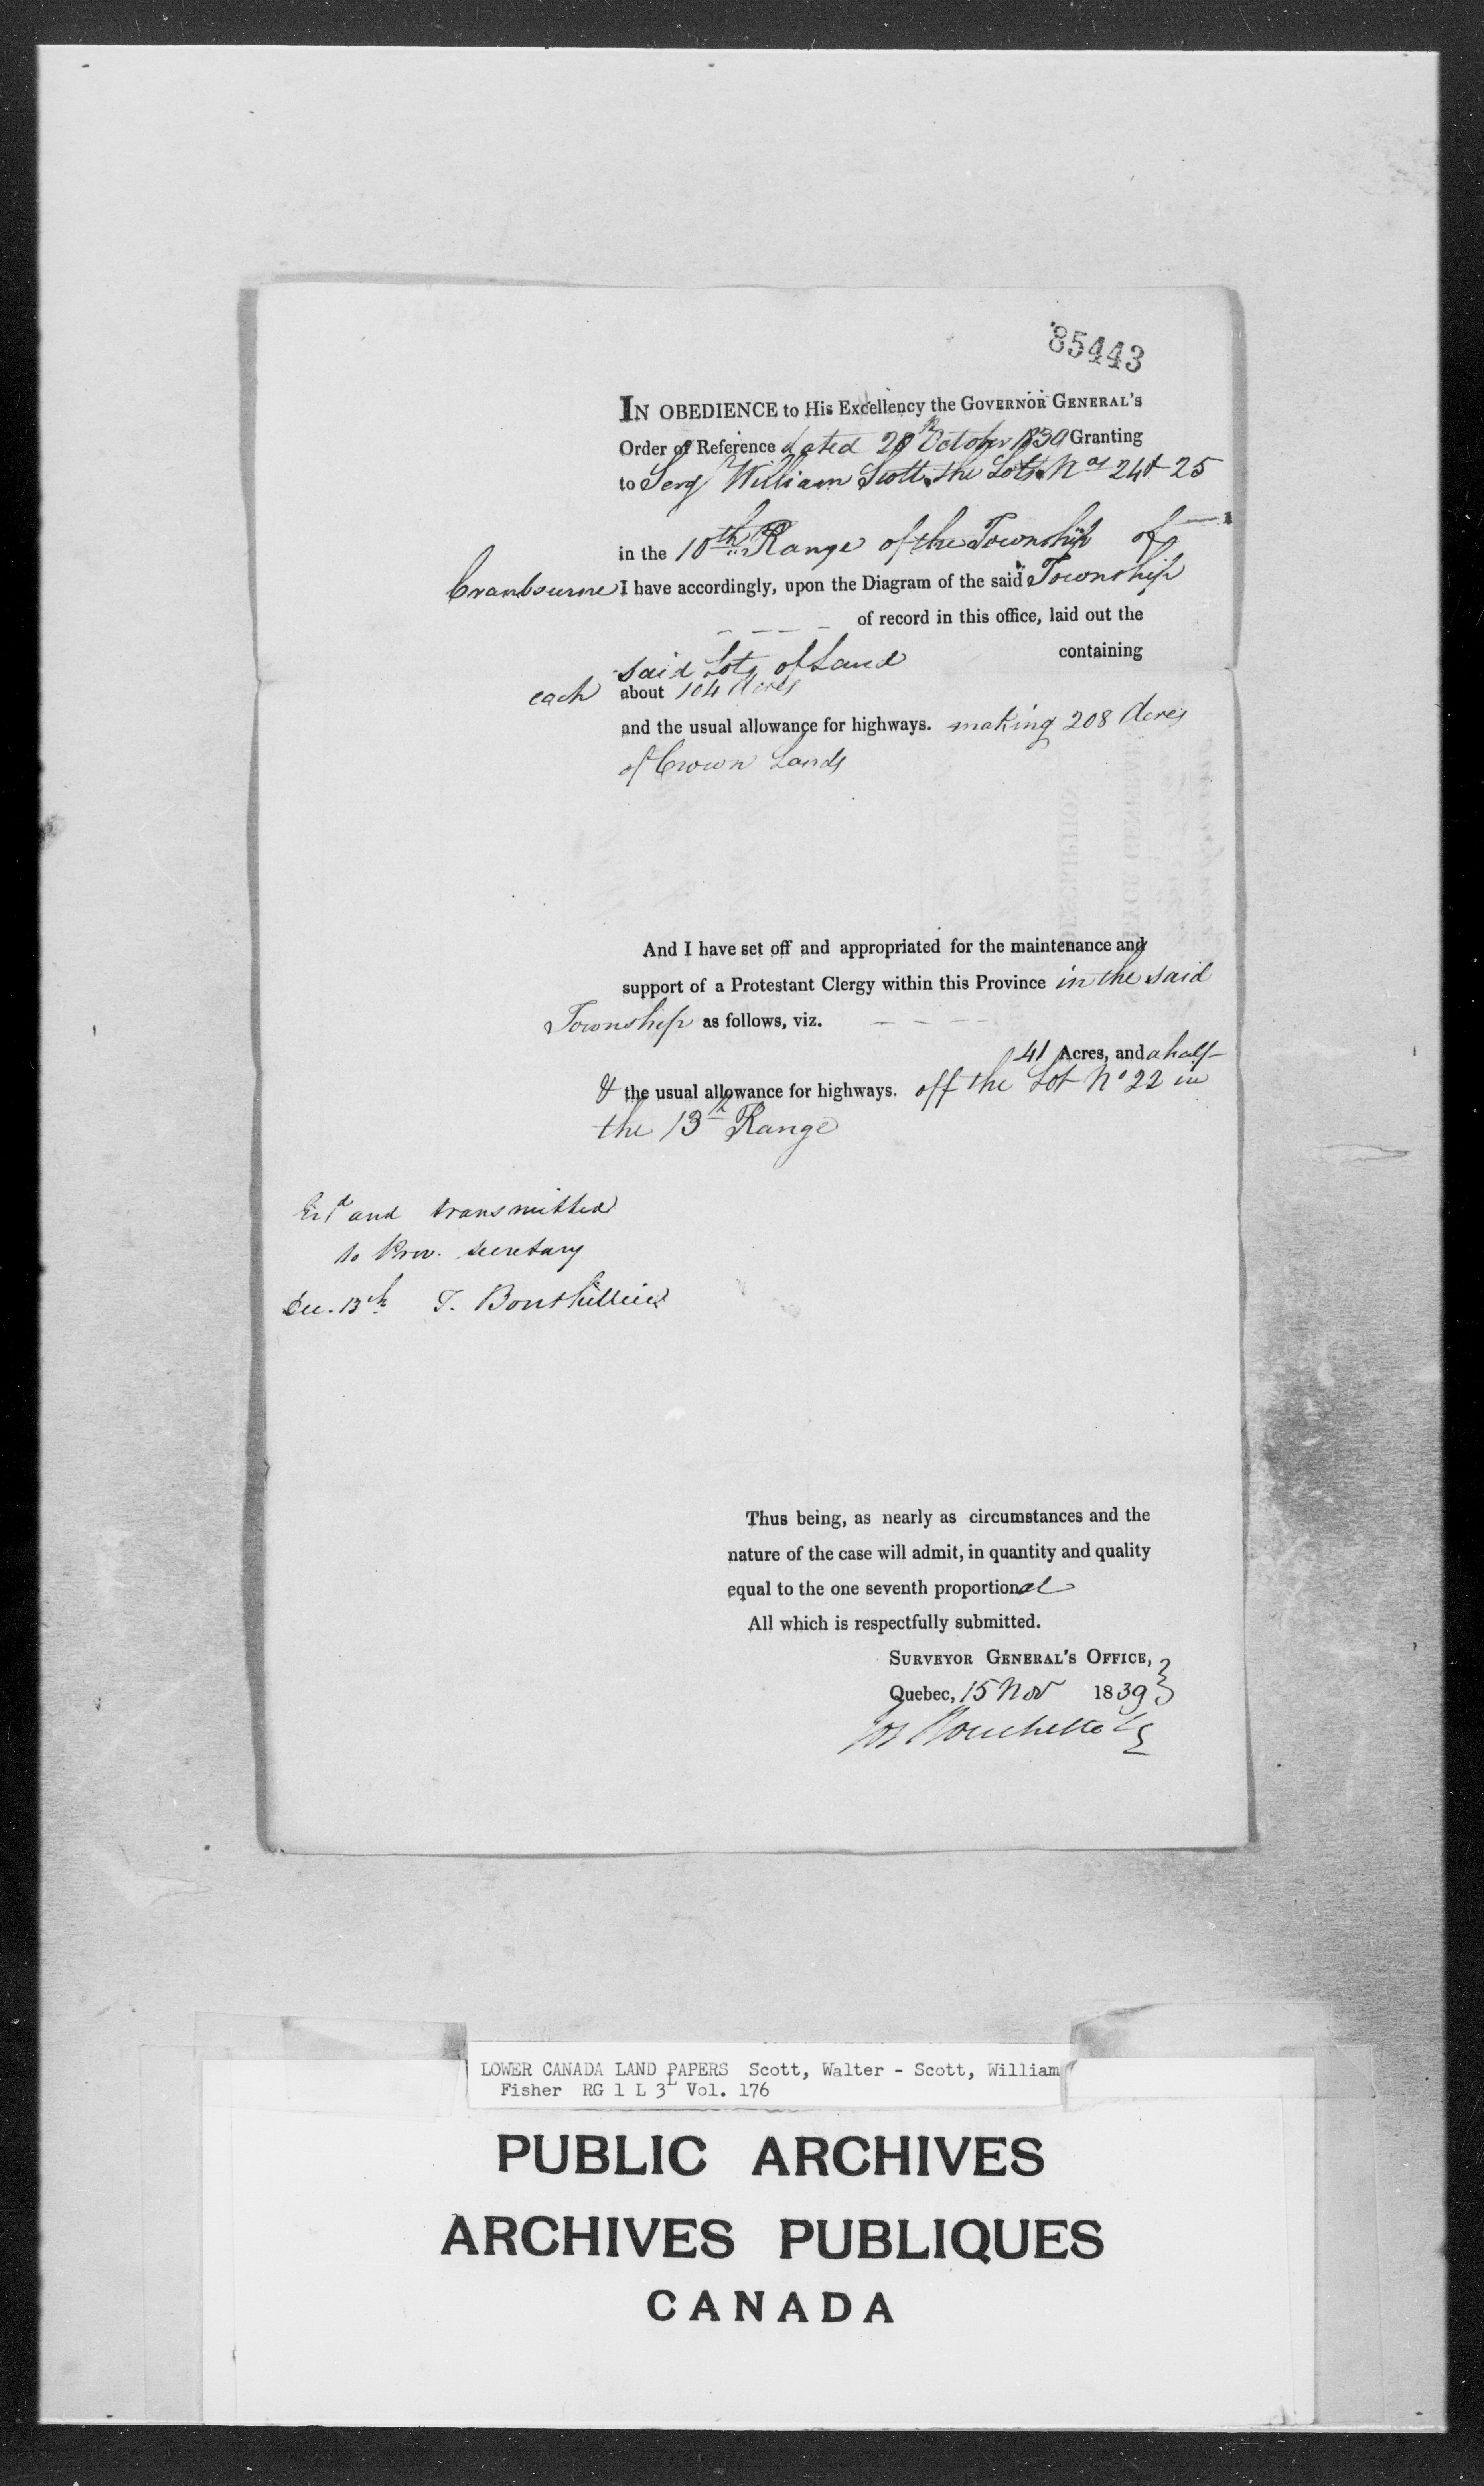 85443
IN OBEDIENCE to His Excellency the GOVERNOR GENERAL'S
Order of Reference dated 28th October 1839 Granting
to Serg William Scott the Lots Nos 24 & 25
in the 10th Range of the Township of
Cranbourne I have accordingly, upon the Diagram of the said Township
of record in this office, laid out the
said Lots of Land containing
each about 104 Acres
and the usual allowance for highways. making 208 Acres
of Crown Lands
And I have set off and appropriated for the maintenance and
support of a Protestant Clergy within this Province in the said
Township as follows, viz.
41 Acres, and a half
& the usual allowance for highways. off the Lot No 22 in
the 13th Range
and transmitted
to Prov. Secretary
Dec. 13th T. Bouthillier
Thus being, as nearly as circumstances and the
nature of the case will admit, in quantity and quality
equal to the one seventh proportional
All which is respectfully submitted.
SURVEYOR GENERAL'S OFFICE,
Quebec, 15 Nov 1839
Jos Bouchette
LOWER CANADA LAND PAPERS Scott, Walter - Scott, William
Fisher RG 1 L 3L Vol. 176
PUBLIC ARCHIVES
ARCHIVES PUBLIQUES
CANADA